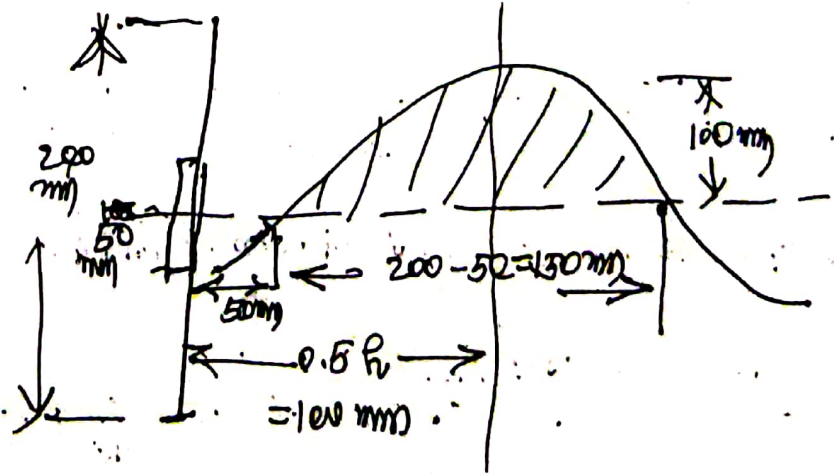 200
mm
100 mm
50
mm
200-50=150mm
50mm
0.5 h
=100 mm